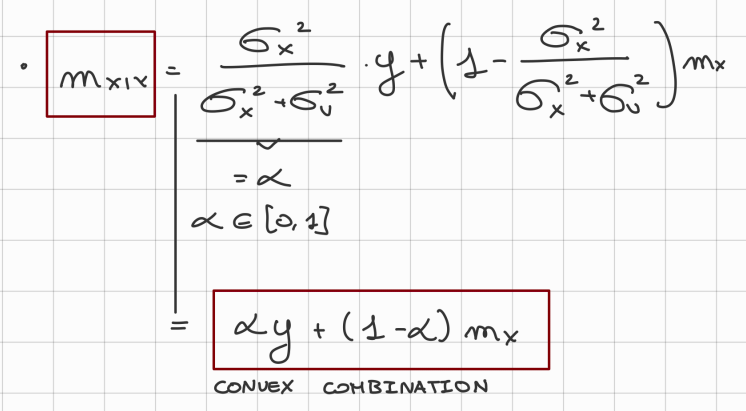 · m_{x|x} = \frac{σ_x^2}{σ_x^2 + σ_v^2} · y + (1 - \frac{σ_x^2}{σ_x^2 + σ_v^2}) m_x
= α
α ∈ [0, 1]
= αy + (1 - α) m_x
CONVEX COMBINATION